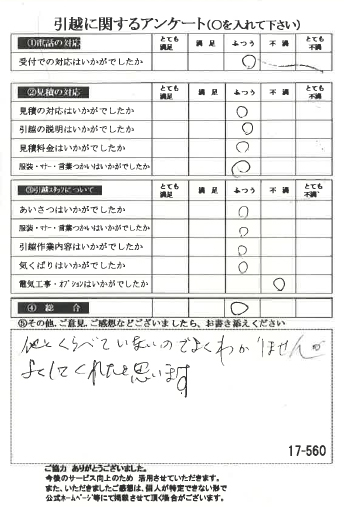 引越に関するアンケート(○を入れて下さい)
①電話の対応 とても満足 満足 ふつう 不満 とても不満
受付での対応はいかがでしたか
②見積の対応 とても満足 満足 ふつう 不満 とても不満
見積の対応はいかがでしたか
引越の説明はいかがでしたか
見積料金はいかがでしたか
服装・マナー・言葉づかいはいかがでしたか
③引越スタッフについて とても満足 満足 ふつう 不満 とても不満
あいさつはいかがでしたか
服装・マナー・言葉づかいはいかがでしたか
引越作業内容はいかがでしたか
気くばりはいかがでしたか
電気工事・オプションはいかがでしたか
④ 総合
⑤その他、ご意見、ご感想などございましたら、お書き添えください
他とくらべていないのでよくわかりません。
よくしてくれたと思います
17-560
ご協力 ありがとうございました。
今後のサービス向上のため 活用させていただきます。
また、いただきましたご感想は、個人が特定できない形で
公式ホームページ等にて掲載させて頂く場合がございます。